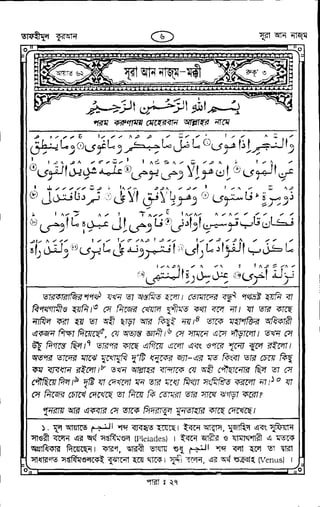 তাফহীমুল কুরআন
৬
সূরা আন নাজম
আয়াত ৬২
সূরা আন নাজম-মক্কী
রুকূ' ৩
بِسْمِ اللهِ الرَّحْمٰنِ الرَّحِيْمِ
পরম করুণাময় মেহেরবান আল্লাহর নামে
وَالنَّجْمِ اِذَا هَوٰى ۝ مَا ضَلَّ صَاحِبُكُمْ وَمَا غَوٰى ۝ وَمَا يَنْطِقُ
عَنِ الْهَوٰى ۝ اِنْ هُوَ اِلَّا وَحْيٌ يُّوْحٰى ۝ عَلَّمَهٗ شَدِيْدُ الْقُوٰى ۝
ذُوْ مِرَّةٍ ؕ فَاسْتَوٰى ۝ وَهُوَ بِالْاُفُقِ الْاَعْلٰى ۝ ثُمَّ دَنَا فَتَدَلّٰى ۝
فَكَانَ قَابَ قَوْسَيْنِ اَوْ اَدْنٰى ۝ فَاَوْحٰۤى اِلٰى عَبْدِهٖ مَاۤ اَوْحٰى ۝
مَا كَذَبَ الْفُؤَادُ مَا رَاٰى ۝ اَفَتُمٰرُوْنَهٗ عَلٰى مَا يَرٰى ۝ وَلَقَدْ رَاٰهُ
نَزْلَةً اُخْرٰى ۝ عِنْدَ سِدْرَةِ الْمُنْتَهٰى ۝
তারকারাজির শপথ যখন তা অস্তমিত হলো। তোমাদের বন্ধু পথভ্রষ্ট হয়নি বা
বিপথগামীও হয়নি। সে নিজের খেয়াল খুশীমত কথা বলে না। যা তার কাছে
নাযিল করা হয় তা অহী ছাড়া আর কিছুই নয়। তাকে মহাশক্তির অধিকারী
একজন শিক্ষা দিয়েছে, যে অত্যন্ত জ্ঞানী। সে সামনে এসে দাঁড়ালো। তখন সে
উঁচু দিগন্তে ছিল। তারপর কাছে এগিয়ে এলো এবং ওপরে শূন্যে ঝুলে রইলো।
অতপর তাদের মাঝে মুখোমুখি দু'টি ধনুকের জ্যা-এর মত কিংবা তার চেয়ে কিছু
কম ব্যবধান রইলো। তখন আল্লাহর বান্দাকে যে অহী পৌঁছানোর ছিল তা সে
পৌঁছিয়ে দিল। দৃষ্টি যা দেখলো মন তার মধ্যে মিথ্যা সংমিশ্রিত করলো না। যা
সে নিজের চোখে দেখেছে তা নিয়ে কি তোমরা তার সাথে ঝগড়া করো?
পুনরায় আর একবার সে তাকে সিদরাতুল মুনতাহার কাছে দেখেছে।
১. মূল আয়াতে النجم শব্দ ব্যবহৃত হয়েছে। ইবনে আব্বাস, মুজাহিদ এবং সুফিয়ান
সাওরী বলেন এর অর্থ সপ্তর্ষিমণ্ডল (Pleiades) ।
সাধারণত সপ্তর্ষিমণ্ডলকেই বুঝানো হয়ে থাকে। সুদ্দী বলেন, এর অর্থ শুকতারা (Venus) ।
পারা ঃ ২৭